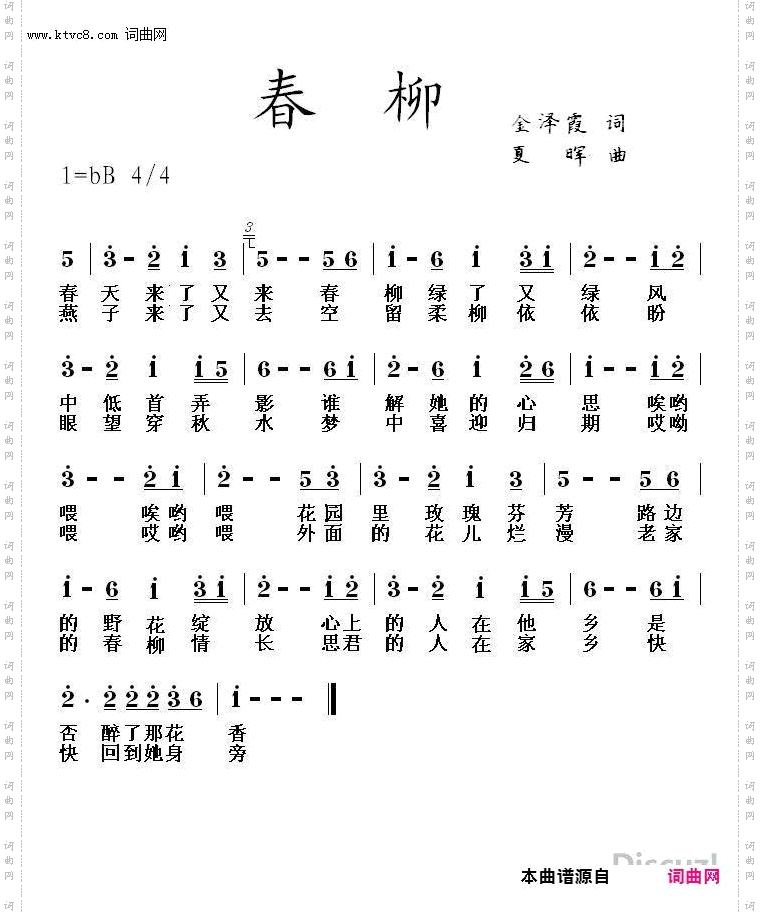 www.ktvc8.com 词曲网
春 柳
金泽霞 词
夏 晖 曲
1=bB 4/4
3
5 | 3 - 2 1 3 | 5 - - 5 6 | 1 - 6 1 3 1 | 2 - - 1 2 |
春 天 来 了 又 来 春 柳 绿 了 又 绿 风
燕 子 来 了 又 去 空 留 柔 柳 依 依 盼
3 - 2 1 1 5 | 6 - - 6 1 | 2 - 6 1 2 6 | 1 - - 1 2 |
中 低 首 弄 影 谁 解 她 的 心 思 唉 哟
眼 望 穿 秋 水 梦 中 喜 迎 归 期 哎 呦
3 - - 2 1 | 2 - - 5 3 | 3 - 2 1 3 | 5 - - 5 6 |
喂 唉 哟 喂 花 园 里 玫 瑰 芬 芳 路 边
喂 哎 哟 喂 外 面 的 花 儿 烂 漫 老 家
1 - 6 1 3 1 | 2 - - 1 2 | 3 - 2 1 1 5 | 6 - - 6 1 |
的 野 花 绽 放 心 上 的 人 在 他 乡 是
的 春 柳 情 长 思 君 的 人 在 家 乡 快
2 · 2 2 2 3 6 | 1 - - - ‖
否 醉 了 那 花 香
快 回 到 她 身 旁
本曲谱源自 词曲网
词曲网